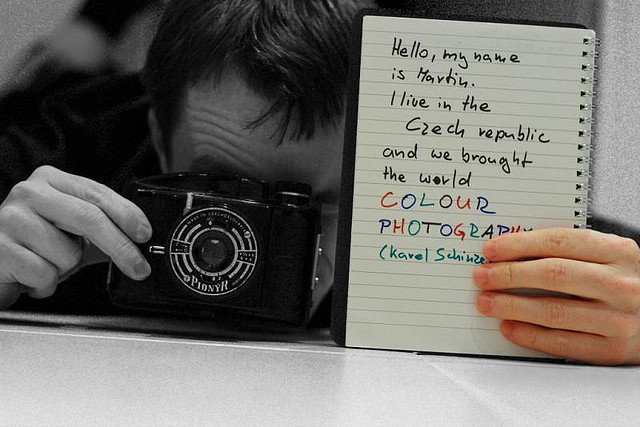 Hello, my name
is Martin.
I live in the
Czech republic
and we brought
the world
COLOUR
PHOTOGRAPHY
(Karel Schinze
PIONYR